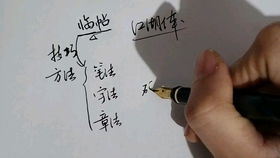 临帖 江湖体.
技巧
方法 笔法
字法
章法